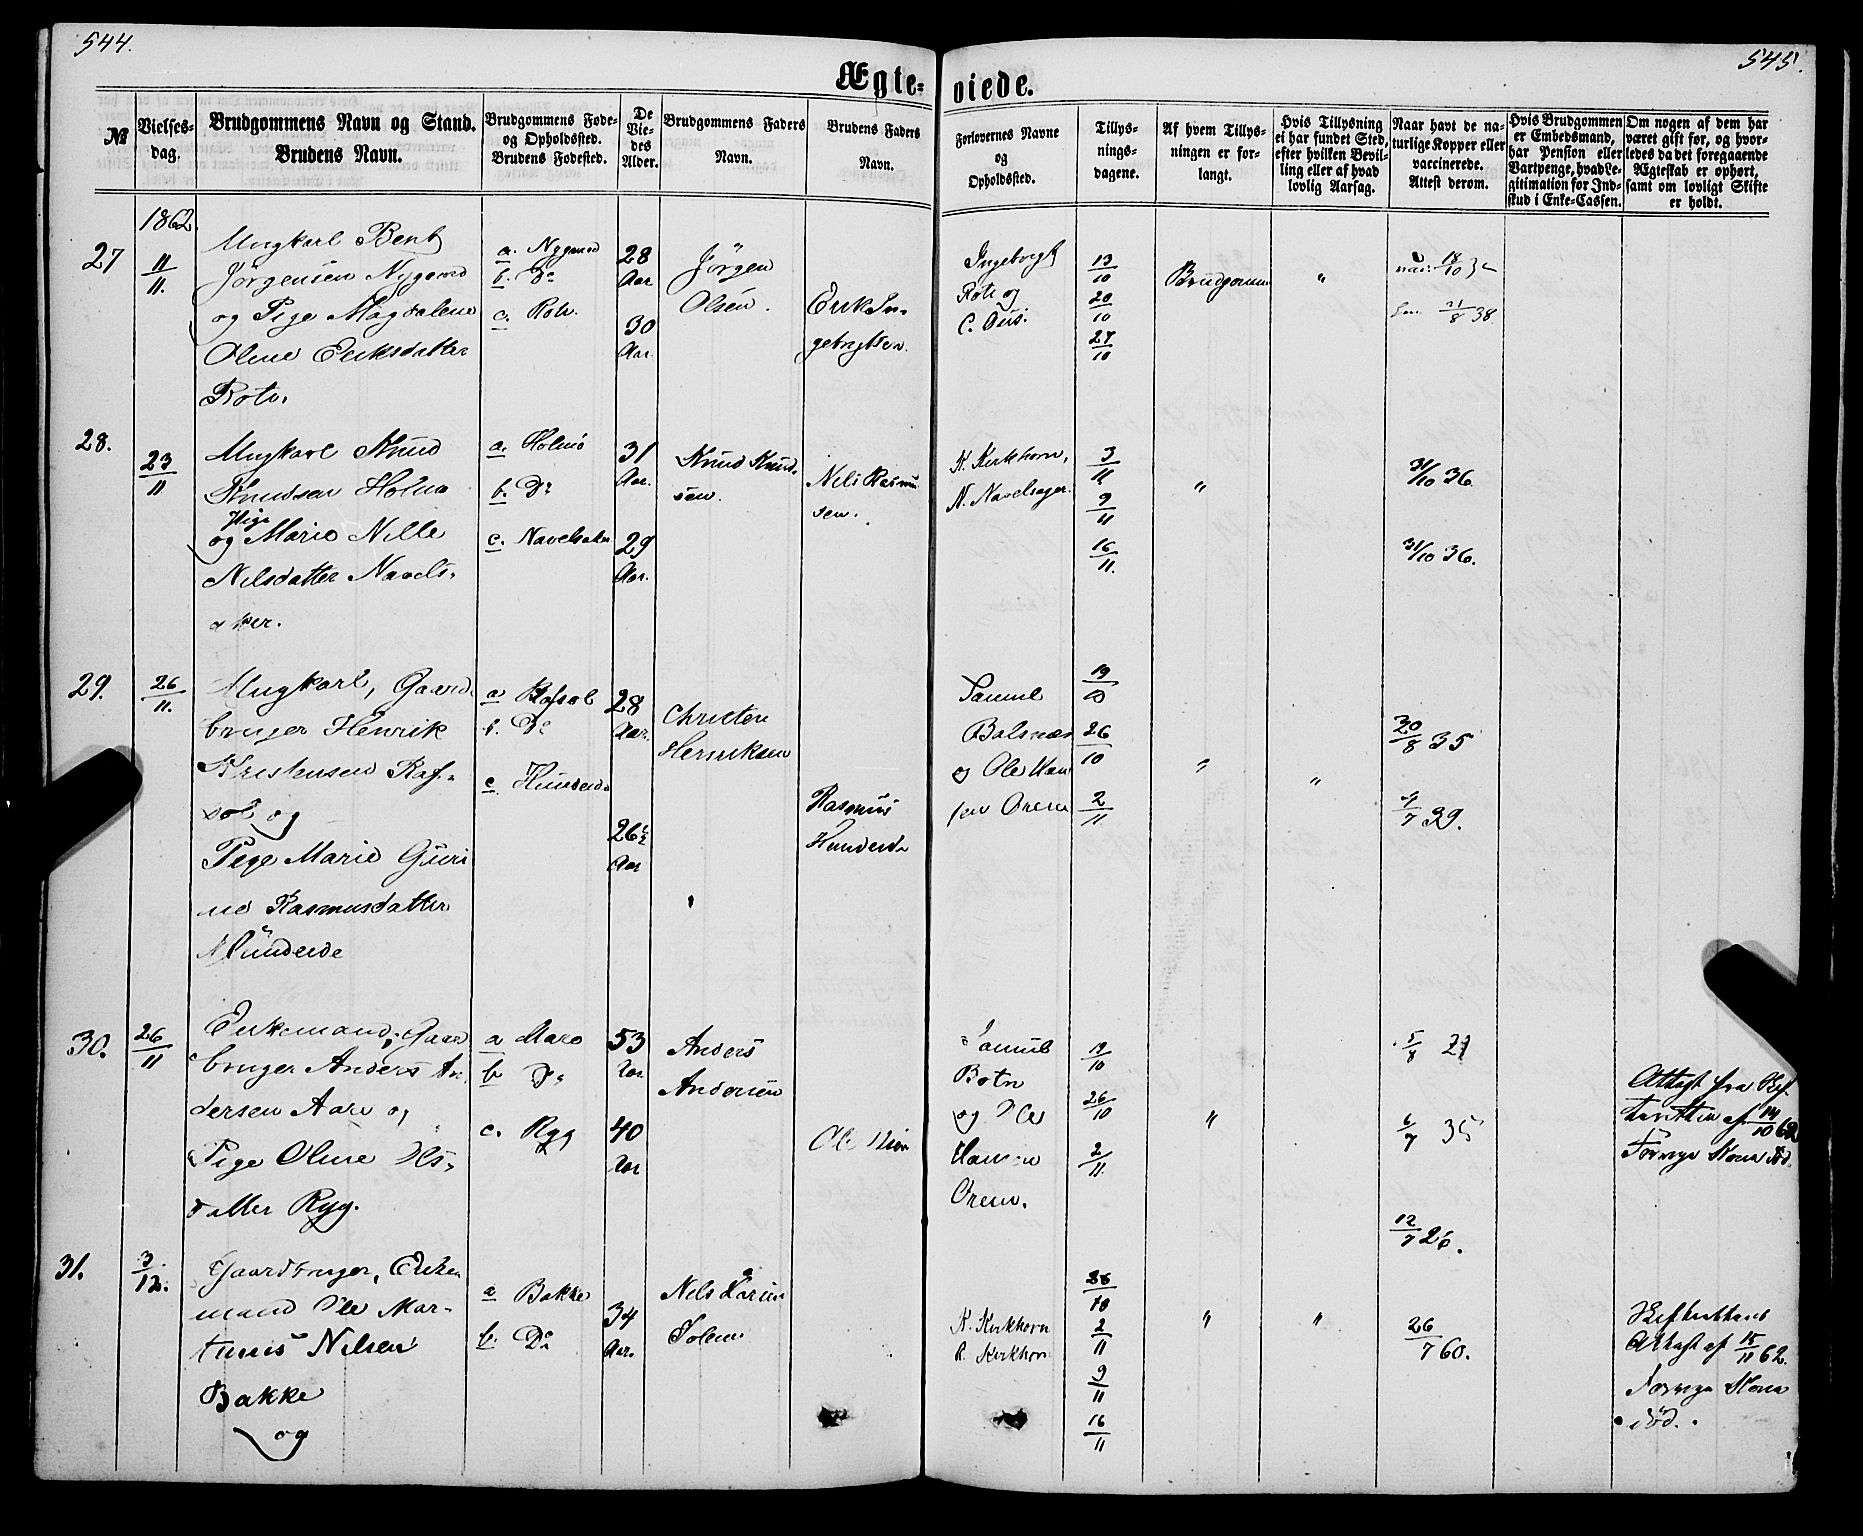 544.
545.
Ægte-
viede.
№
Vielses-
dag.
Brudgommens Navn og Stand.
Brudens Navn.
Brudgommens Føde-
og Opholdssted.
Brudens Fødested.
De
Vie-
des
Alder.
Brudgommens Faders
Navn.
Brudens Faders
Navn.
Forlovernes Navne
og
Opholdssted.
Tillys-
nings-
dagene.
Af hvem Tillys-
ningen er for-
langt.
Hvis Tillysning
ei har fundet Sted,
efter hvilken Bevil-
ling eller af hvad
lovlig Aarsag.
Naar havt de na-
turlige Kopper eller
vaccinerede.
Attest derom.
Hvis Brudgommen
er Embedsmand,
har Pension eller
Vartpenge, hvad Le-
gitimation for Ind-
skud i Enke-Cassen.
Om nogen af dem har
været gift før, og hvor-
ledes da det foregaaende
Ægteskab er ophørt,
samt om lovligt Skifte
er holdt.
1862.
27
11/11.
Ungkarl Bent
Jørgensen Nygaard
og Pige Magdalene
Oline Eriksdatter
Rote.
a. Nygaard
b. Do
c. Rote.
28
Aar
30
Aar.
Jørgen
Olsen.
Erik In-
gebrigtsen.
Ingebrigt
Rote og
13/10
20/10
27/10
Brudgommen
"
18/10
21/8 38
28.
23/11
Ungkarl Knud
Knudsen Holma
Pige
og Marie Nille
Nilsdatter Navels-
aker.
a. Holmo
b. Do
c. Navelsaker
31
Aar.
29
Aar.
Knud Knud-
sen.
Nils Rasmu
sen.
K. Kirkhorn,
N. Navelsager.
3/11
9/11
16/11.
"
31/10 36.
31/10 36.
29.
26/11.
Ungkarl, Gaard-
bruger Henrik
Kristensen Raf-
sol og
Pige Marie Guri
ne Rasmusdatter
Hunderde
a Rafsol
b. Do
c
28
Aar.
26 1/2
Aar
Christen
Henriksen
Rasmus
Samuel
Balsnæs
og Ole Han
sen Oren
19/10
26/10
2/11
"
"
20/8 35
4/7 39.
30.
26/11
Enkemand, Gaard
bruger Anders An
dersen Aare og
Pige Oline Ols-
datter Ryg.
a Aare
b Do
c. Ryg
53
Aar
40
Aar
Anders
Andersen
Samuel
Botn
og Ole
Hansen
Oren.
19/10
26/10
2/11.
"
5/8 21
6/7 35
Attest fra Skif-
teretten af 14/10 62
Forrige Kone død.
31.
3/12.
Gaardbruger, Enke
mand Ole Mar-
tinus Nilsen
Bakke
og
a Bakke
b. Do
34
Aar.
Nils Larsen
Solem
K. Kirkhorn
R. Kirkhorn
26/10
2/11
9/11
16/11
"
"
12/7 26.
26/7 60.
Skifterettens
Attest af 15/11 62.
Forrige Kone
død.